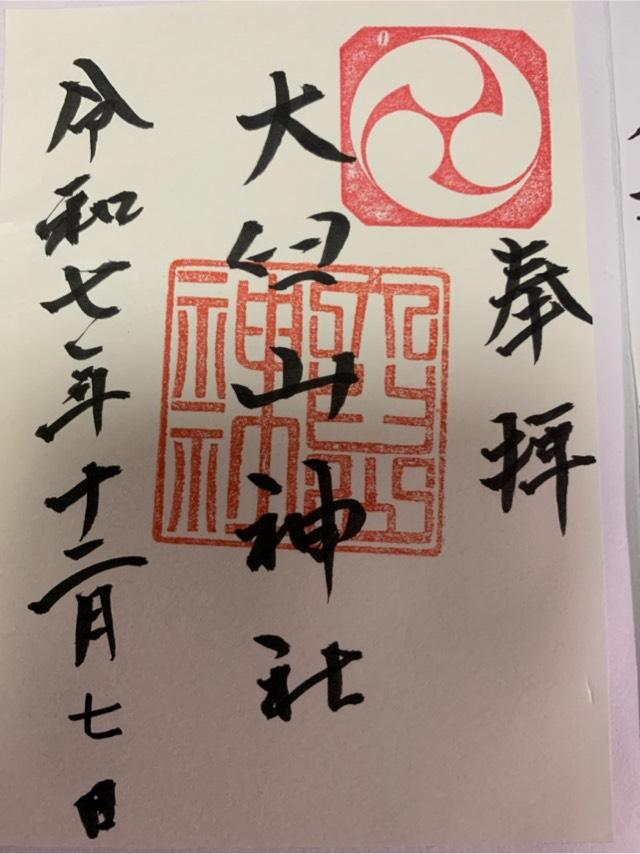 奉拝
大 山神社
令和七年十二月七日